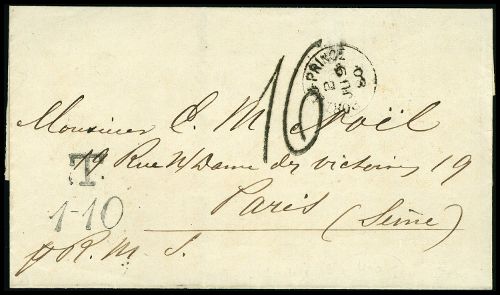 16
PORT AU PRINCE
Monsieur C. M. Noël
T.
19 Rue N/Dame des victoires 19
1-10
Paris (Seine)
p R. M. S.